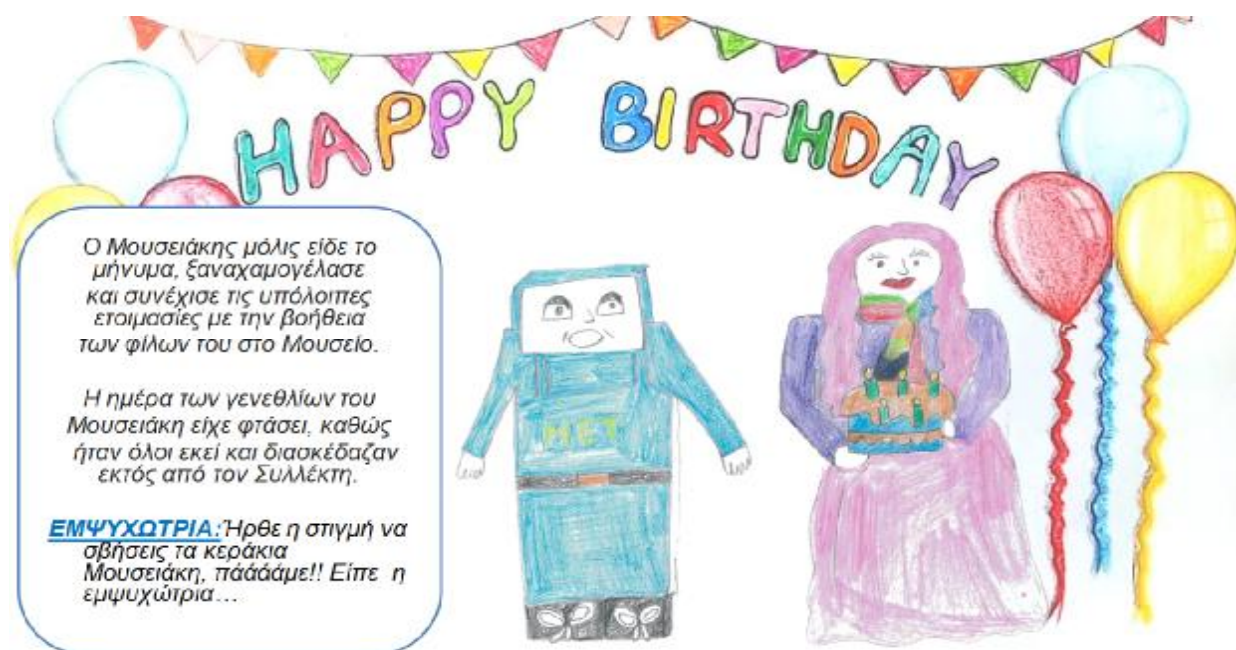 HAPPY BIRTHDAY
Ο Μουσειάκης μόλις είδε το
μήνυμα, ξαναχαμογέλασε
και συνέχισε τις υπόλοιπες
ετοιμασίες με την βοήθεια
των φίλων του στο Μουσείο.
Η ημέρα των γενεθλίων του
Μουσειάκη είχε φτάσει, καθώς
ήταν όλοι εκεί και διασκέδαζαν
εκτός από τον Συλλέκτη.
ΕΜΨΥΧΩΤΡΙΑ:Ήρθε η στιγμή να
σβήσεις τα κεράκια
Μουσειάκη, πάάάάάμε!! Είπε η
εμψυχώτρια…
ΜΕΤ